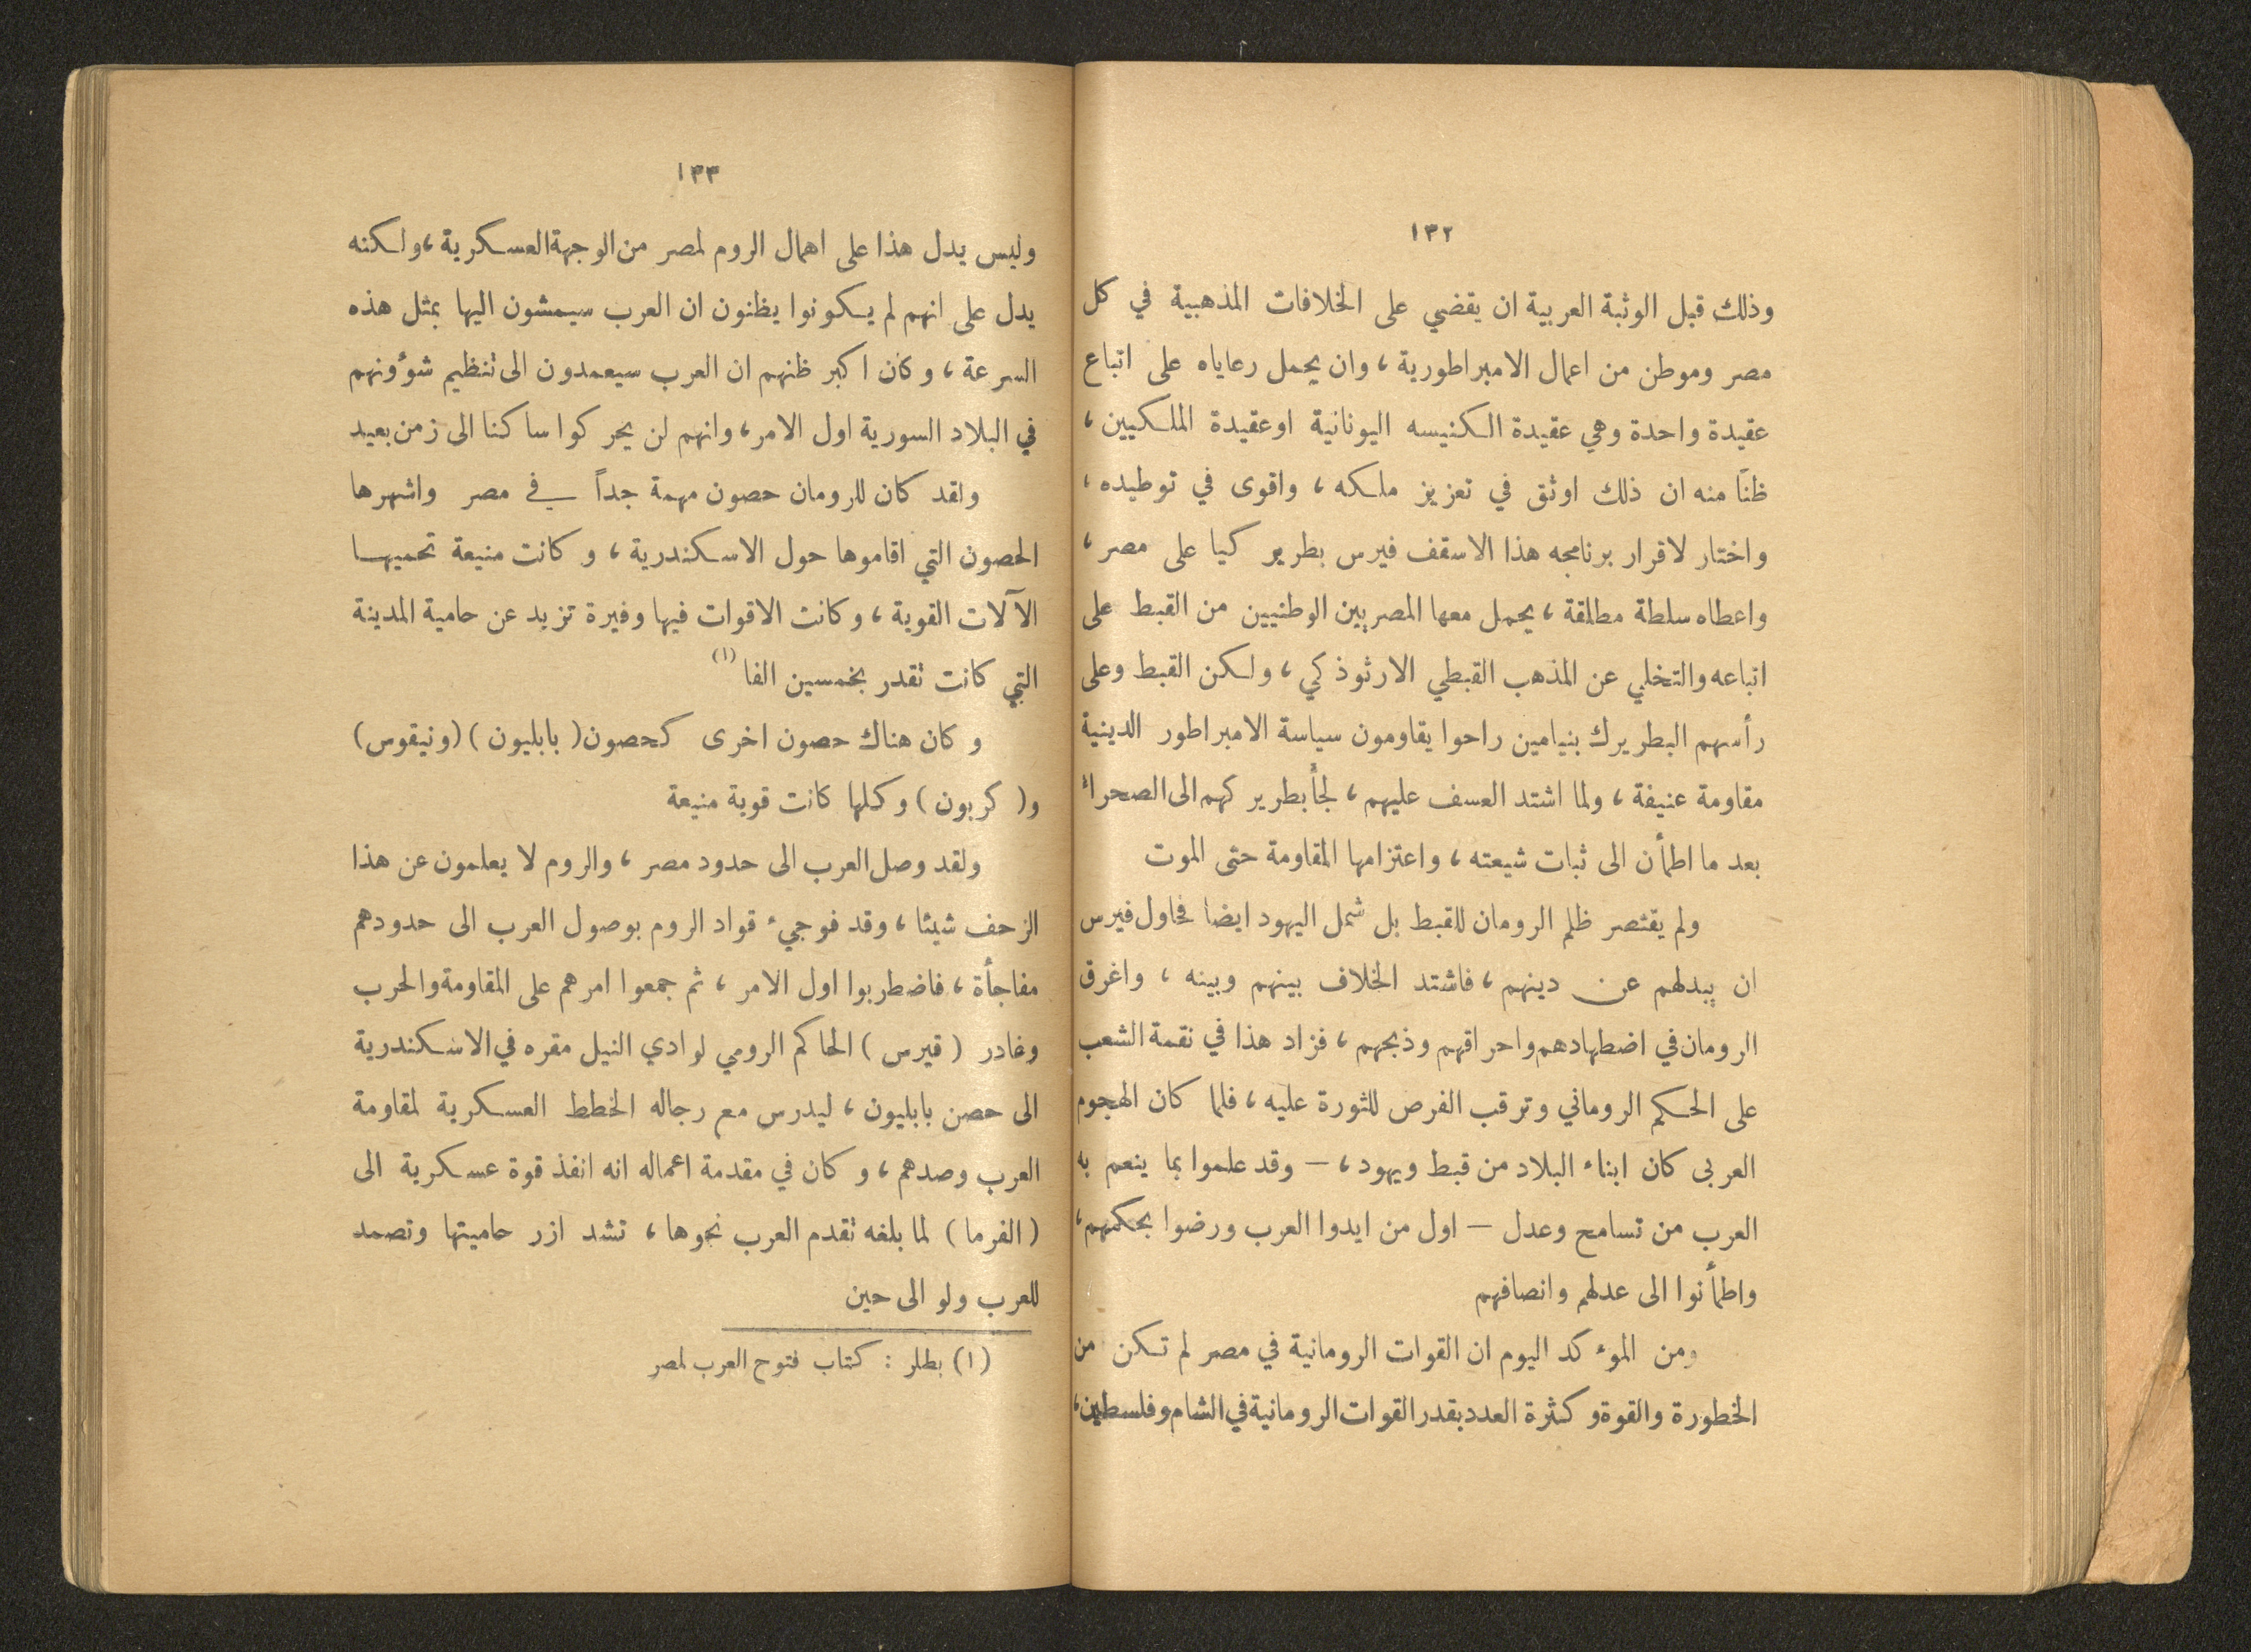 ١٣٢
وذلك قبل الوثبة العربية ان يقضي على الخلافات المذهبية في كل
مصر وموطن من اعمال الامبراطورية، وان يحمل رعاياه على اتباع
عقيدة واحدة وهي عقيدة الكنيسه اليونانية او عقيدة الملكيين،
ظنَا منه ان ذلك اوثق في تعزيز ملكه، واقوى في توطيده،
واختار لاقرار برنامجه هذا الاسقف فيرس بطريركيا على مصر،
واعطاه سلطة مطلقة، يحمل معها المصريين الوطنيين من القبط على
اتباعه والتخلي عن المذهب القبطي الارثوذكي، ولكن القبط وعلى
رأسهم البطريرك بنيامين راحوا يقاومون سياسة الامبراطور الدينية
مقاومة عنيفة، ولما اشتد العسف عليهم، لجأ بطريركهم الى الصحراء
بعد ما اطمأن الى ثبات شيعته، واعتزامها المقاومة حتى الموت
ولم يقتصر ظلم الرومان للقبط بل شمل اليهود ايضا فحاول فيرس
ان يبدلهم عن دينهم، فاشتد الخلاف بينهم وبينه، واغرق
الرومان في اضطهادهم واحراقهم وذبحهم، فزاد هذا في نقمة الشعب
على الحكم الروماني وترقب الفرص للثورة عليه، فلما كان الهجوم
العربى كان ابناء البلاد من قبط ويهود، — وقد علموا بما ينعم به
العرب من تسامح وعدل — اول من ايدوا العرب ورضوا بحكمهم،
واطمأنوا الى عدلهم وانصافهم
ومن الموءكد اليوم ان القوات الرومانية في مصر لم تكن من
الخطورة والقوة وكثرة العدد بقدر القوات الرومانية في الشام وفلسطين،
١٣٣
وليس يدل هذا على اهمال الروم لمصر من الوجهة العسكرية، ولكنه
يدل على انهم لم يكونوا يظنون ان العرب سيمشون اليها بمثل هذه
السرعة، وكان اكبر ظنهم ان العرب سيعمدون الى تنظيم شؤونهم
في البلاد السورية اول الامر، وانهم لن يحركوا ساكنا الى زمن بعيد
ولقد كان للرومان حصون مهمة جداً في مصر واشهرها
الحصون التي اقاموها حول الاسكندرية، وكانت منيعة تحميها
الآلات القوية، وكانت الاقوات فيها وفيرة تزيد عن حامية المدينة
التي كانت تقدر بخمسين الفا (١)
وكان هناك حصون اخرى كحصون (بابليون) (ونيقوس)
و(كربون) وكلها كانت قوية منيعة
ولقد وصل العرب الى حدود مصر، والروم لا يعلمون عن هذا
الزحف شيئا، وقد فوجيء قواد الروم بوصول العرب الى حدودهم
مفاجأة، فاضطربوا اول الامر، ثم جمعوا امرهم على المقاومة والحرب
وغادر (قيرس) الحاكم الرومي لوادي النيل مقره في الاسكندرية
الى حصن بابليون، ليدرس مع رجاله الخطط العسكرية لمقاومة
العرب وصدهم، وكان في مقدمة اعماله انه انفذ قوة عسكرية الى
(الفرما) لما بلغه تقدم العرب نحوها، تشد ازر حاميتها وتصمد
للعرب ولو الى حين
(١) بطلر : كتاب فتوح العرب لمصر